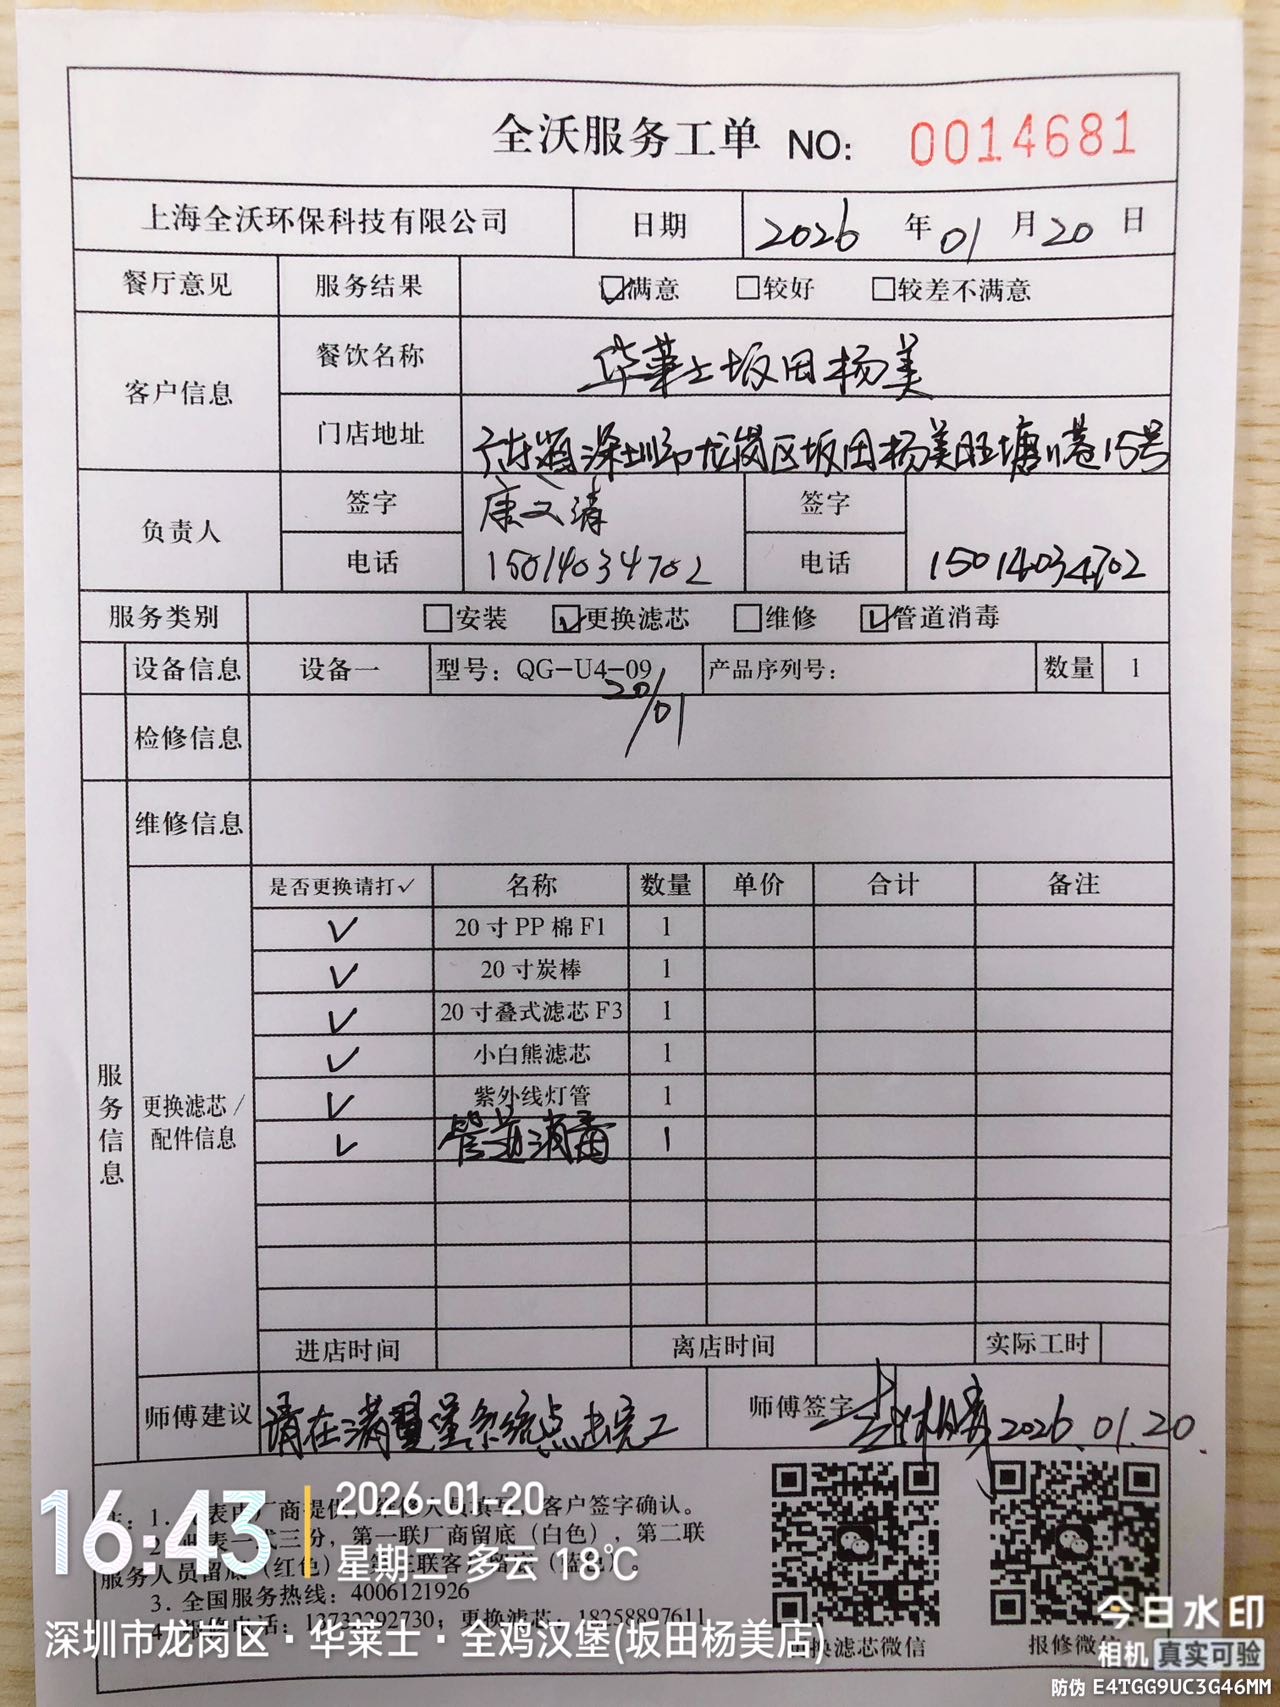 全沃服务工单 NO: 0014681
上海全沃环保科技有限公司 日期 2026 年 01 月 20 日
餐厅意见 服务结果 满意 较好 较差不满意
客户信息 餐饮名称 华莱士坂田杨美
门店地址 广东省深圳市龙岗区坂田杨美旺塘11巷15号
负责人 签字 康文清 签字
电话 15014034702 电话 15014034702
服务类别 安装 更换滤芯 维修 管道消毒
设备信息 设备一 型号：QG-U4-09 产品序列号： 数量 1
20/01
检修信息
维修信息
服务信息
更换滤芯/配件信息
是否更换请打✓ 名称 数量 单价 合计 备注
✓ 20寸PP棉F1 1
✓ 20寸炭棒 1
✓ 20寸叠式滤芯F3 1
✓ 小白熊滤芯 1
✓ 紫外线灯管 1
✓ 管道消毒 1
进店时间 离店时间 实际工时
师傅建议 请在满翼堡系统点击完工 师傅签字 2026.01.20.
注：1. 表由厂商提供，维修人员填写，客户签字确认。
2. 此表一式三份，第一联厂商留底（白色），第二联
服务人员留底（红色） 第三联客户留底（蓝色）。
3. 全国服务热线：4006121926
4. 报修电话：13732292730；更换滤芯：18258897611
更换滤芯微信 报修微信
16:43
2026-01-20
星期二 多云 18℃
深圳市龙岗区·华莱士·全鸡汉堡(坂田杨美店)
今日水印
相机 真实可验
防伪 E4TGG9UC3G46MM